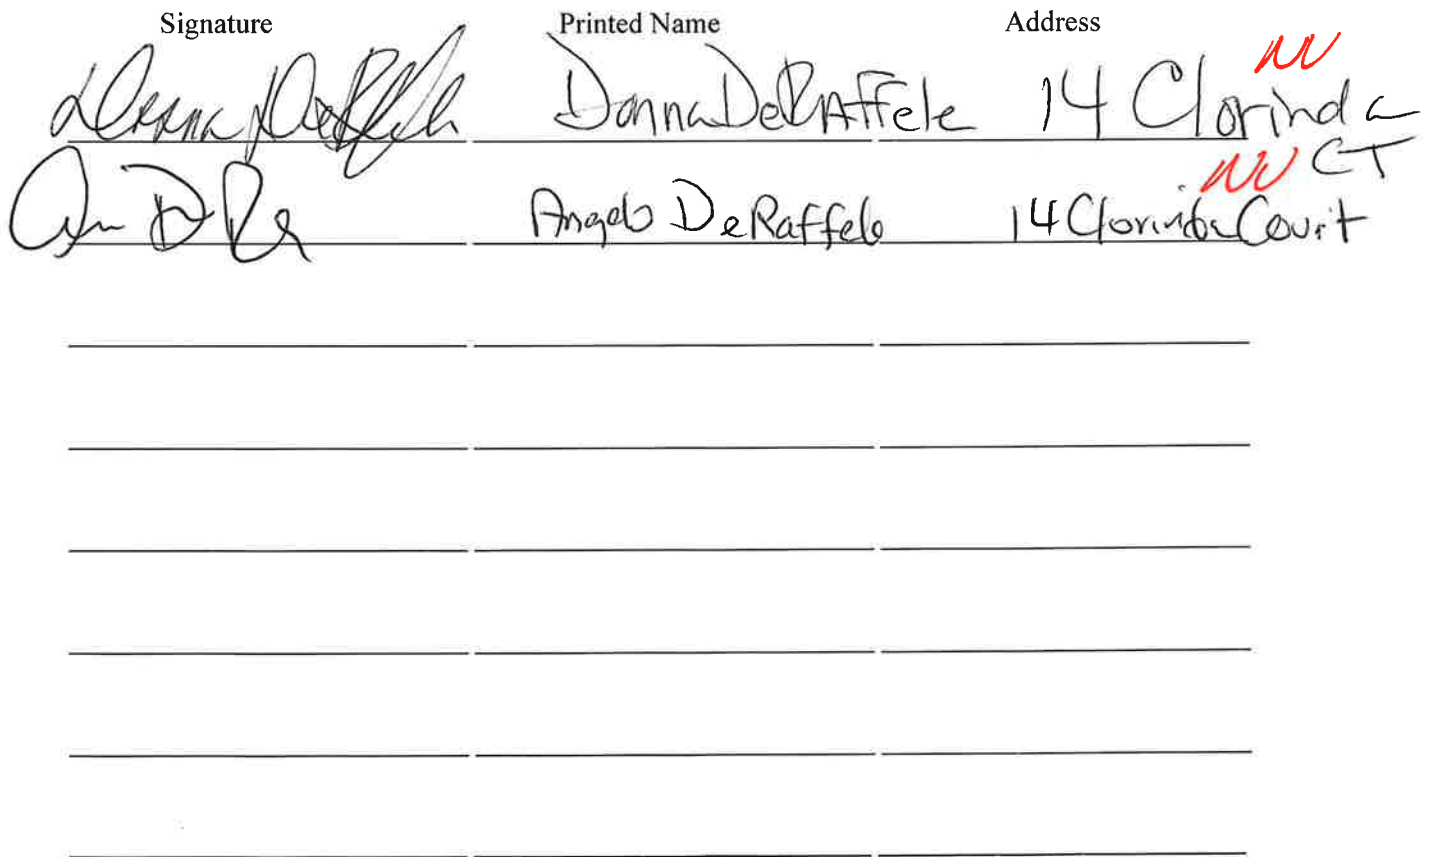 Signature Printed Name Address
Donna DeRaffele Donna DeRaffele 14 Clorinda CT
NV
Angelo DeRaffele 14 Clorinda Court
NV